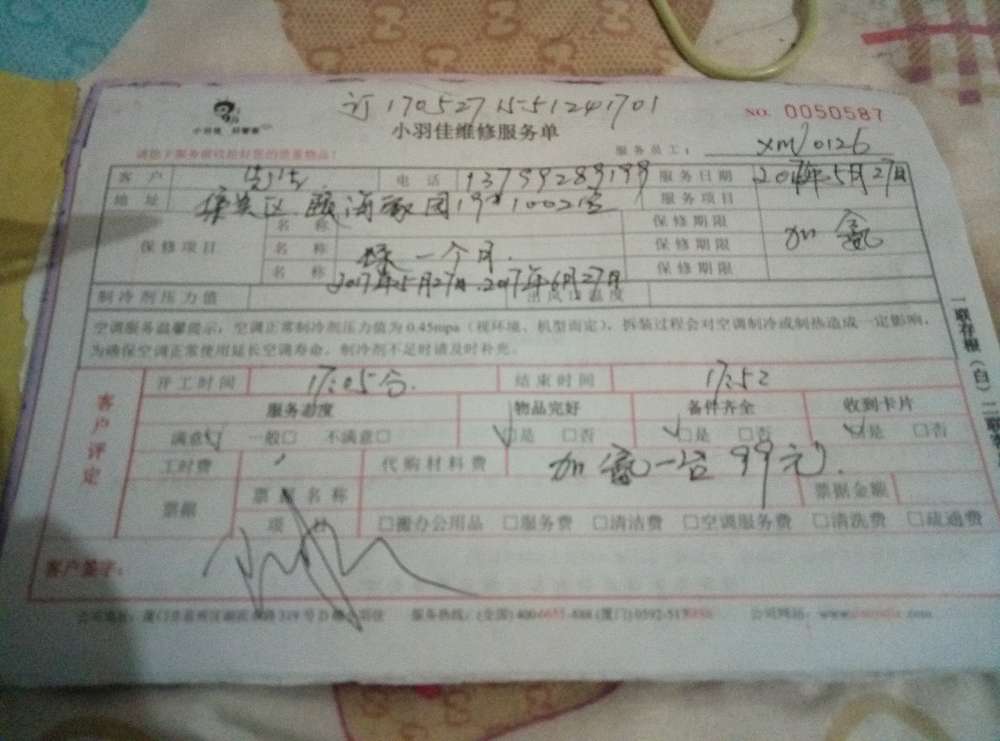 订1705271551241701
NO. 0050587
小羽佳维修服务单
服务员工: XM/0126
客户 电话 服务日期 2017年5月27日
地址 1002室 服务项目 加氟
保修项目 名称 保修期限
名称 保一个月. 保修期限
名称 2017年5月27日.2017年6月27日 保修期限
制冷剂压力值 出风口温度
空调服务温馨提示:空调正常制冷剂压力值为0.45mpa(视环境、机型而定),拆装过程会对空调制冷或制热造成一定影响,
为确保空调正常使用延长空调寿命,制冷剂不足时请及时补充。
客户评定
开工时间 17:05分. 结束时间 17:52
服务态度 物品完好 备件齐全 收到卡片
满意☑ 一般□ 不满意□ ☑是 □否 ☑是 □否 ☑是 □否
工时费 代购材料费 加氟一台99元.
票据 票据名称 票据金额
项目 □搬办公用品 □服务费 □清洁费 □空调服务费 □清洗费 □疏通费
客户签字:
服务热线:(全国)400 (厦门)0592 公司网站:
一联存根(白)二联